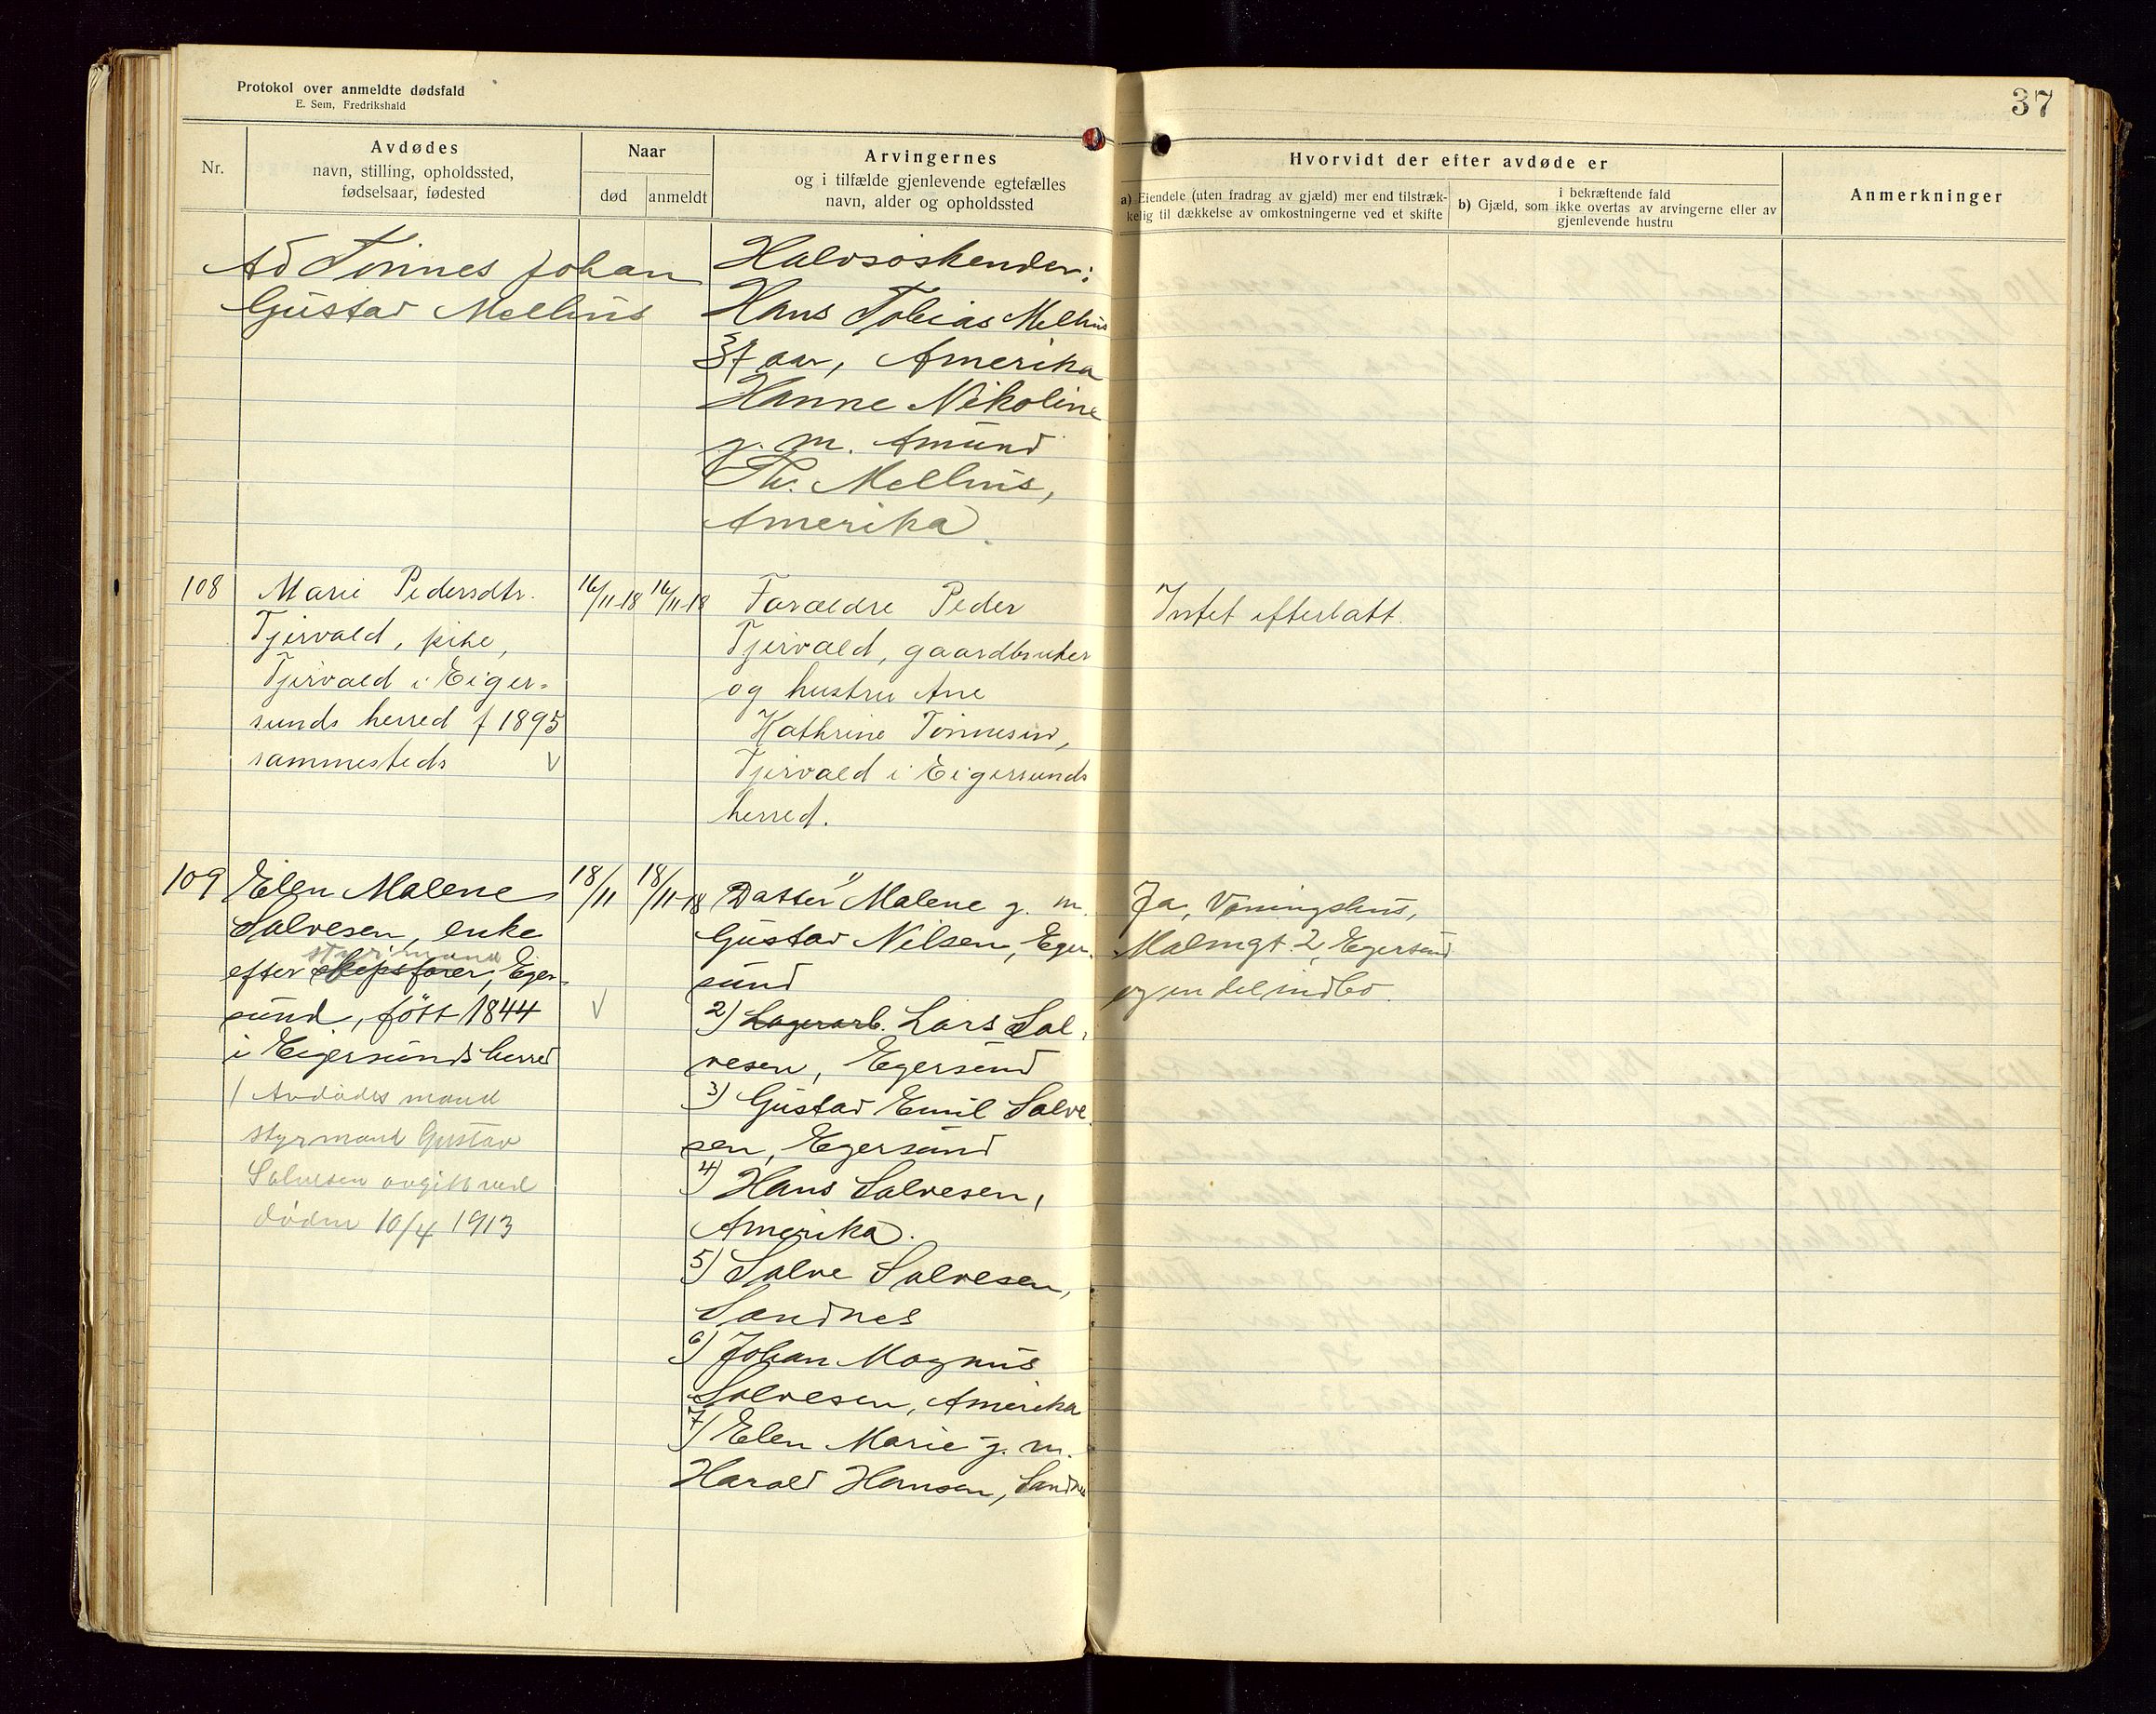 Protokol over anmeldte dødsfald
E. Sem, Fredrikshald
37
Nr.
Avdødes
navn, stilling, opholdssted,
fødselsaar, fødested
Naar
død
anmeldt
Arvingernes
og i tilfælde gjenlevende egtefælles
navn, alder og opholdssted
Hvorvidt der efter avdøde er
a) Eiendele (uten fradrag av gjæld) mer end tilstræk-
kelig til dækkelse av omkostningerne ved et skifte
i bekræftende fald
b) Gjæld, som ikke overtas av arvingerne eller av
gjenlevende hustru
Anmerkninger
Ad Tönnes Johan
Gustav Mellus
Halvsöskender:
Hans Tobias Mellus
37 aar, Amerika
Hanne Nikoline
g. m. Amund
Th. Mellus,
Amerika.
108
Marie Pedersdtr.
Tjersvald, pike,
Tjersvald i Eiger-
sunds herred f 1895
sammesteds
16/11-18
16/11-18
Forældre Peder
Tjersvald, gaardbruker
og hustru Ane
Kathrine Tønnesen,
Tjersvald i Eigersunds
herred.
Intet efterlatt.
109
Elen Malene
Salvesen, enke
styrmand
efter skipsfører, Eger-
sund, født 1844
i Eigersunds herred
1) Avdødes mand
styrmand Gustav
Salvesen avgikk ved
døden 10/4 1913
18/11
18/11-18
1) Datter Malene g. m.
Gustav Nilsen, Eger-
sund
2) Lagerarb. Lars Sal-
vesen, Egersund
3) Gustav Emil Salve-
sen, Egersund
4) Hans Salvesen,
Amerika.
5) Salve Salvesen,
Sandnes
6) Johan Magnus
Salvesen, Amerika
7) Elen Marie g. m.
Harald Hansen, Sandnes
Ja, Våningshus,
Malmgt. 2, Egersund
og en del indbo.